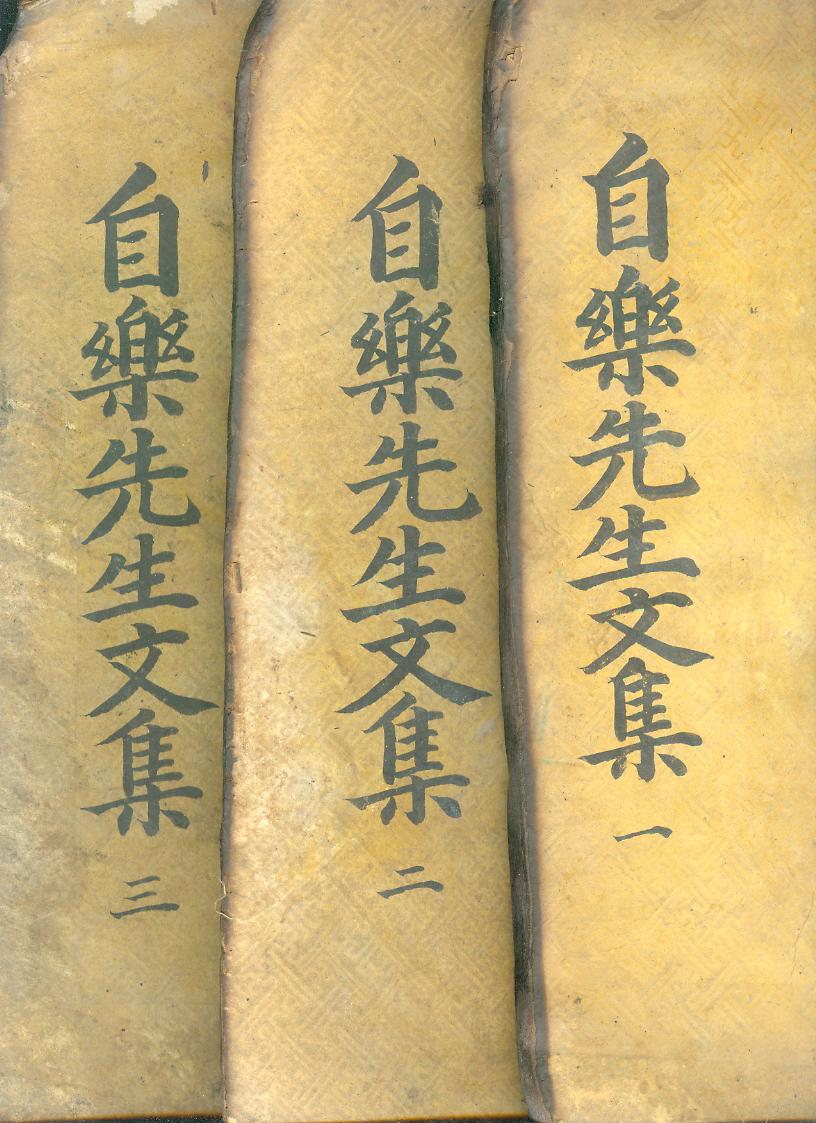 自樂先生文集 一
自樂先生文集 二
自樂先生文集 三